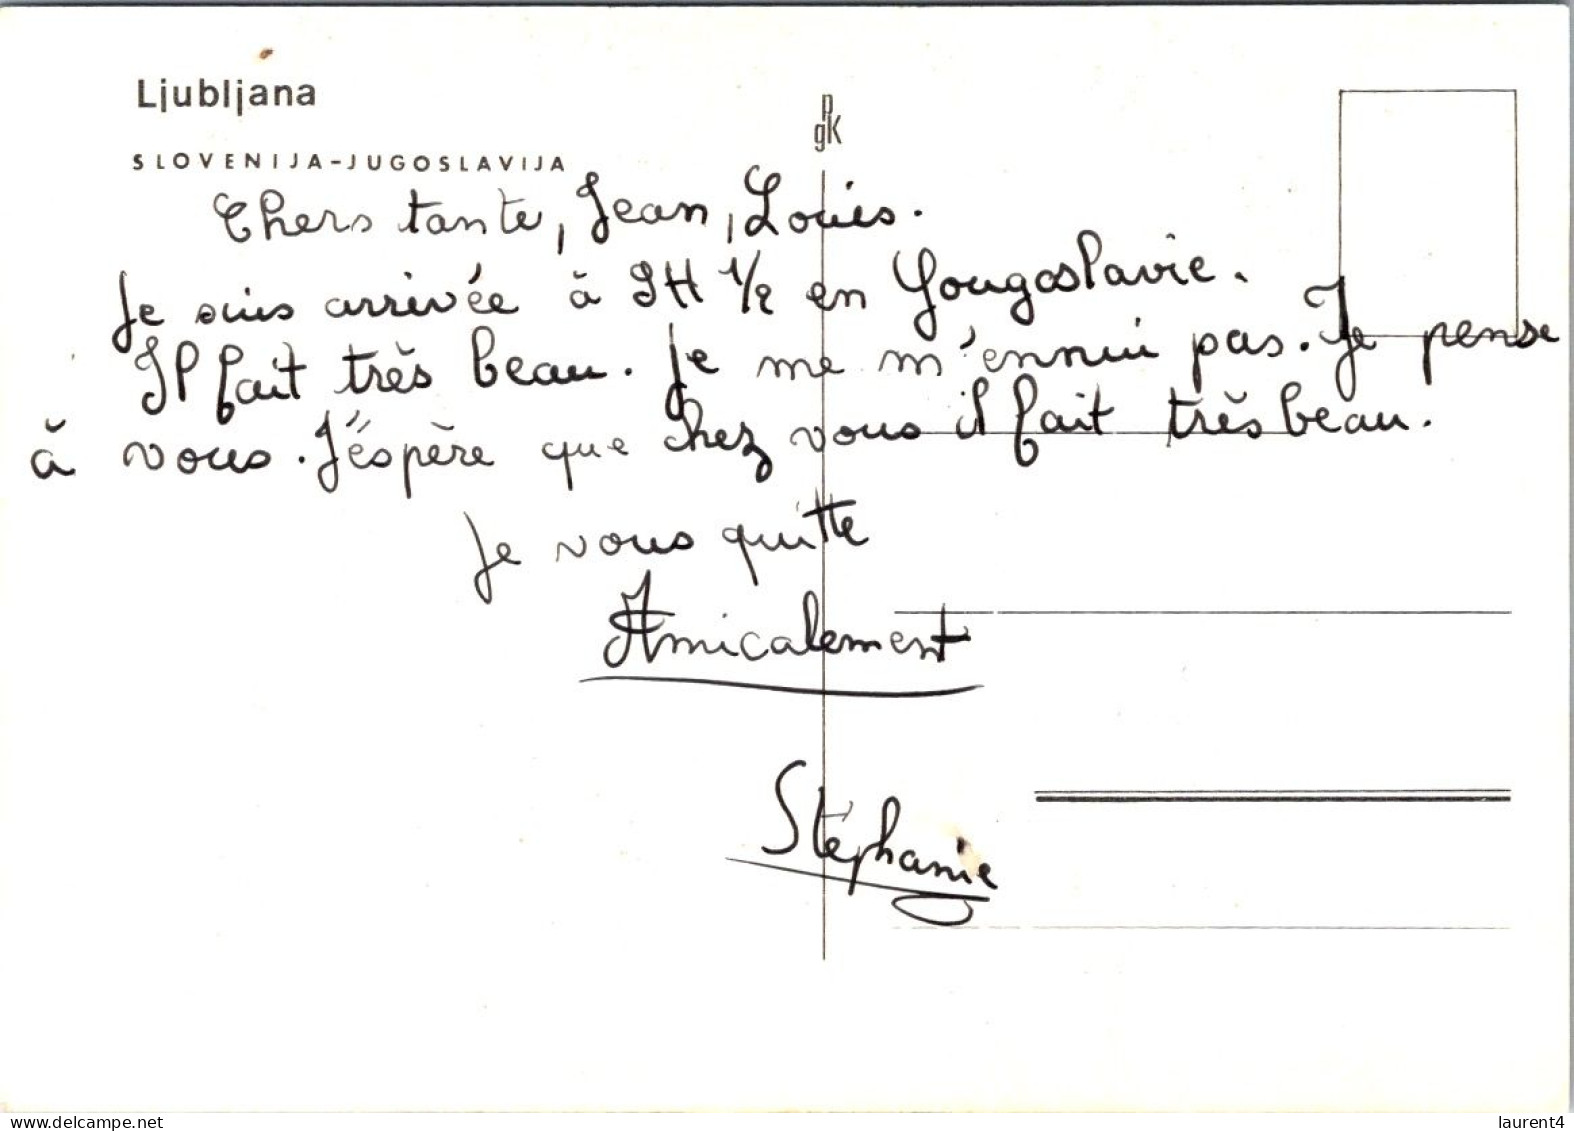 Ljubljana
SLOVENIJA-JUGOSLAVIJA
pgK
Chers tante, Jean, Louis.
Je suis arrivée à 9H 1/2 en Yougoslavie.
Il fait très beau. Je me m'ennui pas. Je pense
à vous. J'éspère que chez vous il fait très beau.
Je vous quitte
Amicalement
Stéphanie
https://www.delcampe.net
laurent4